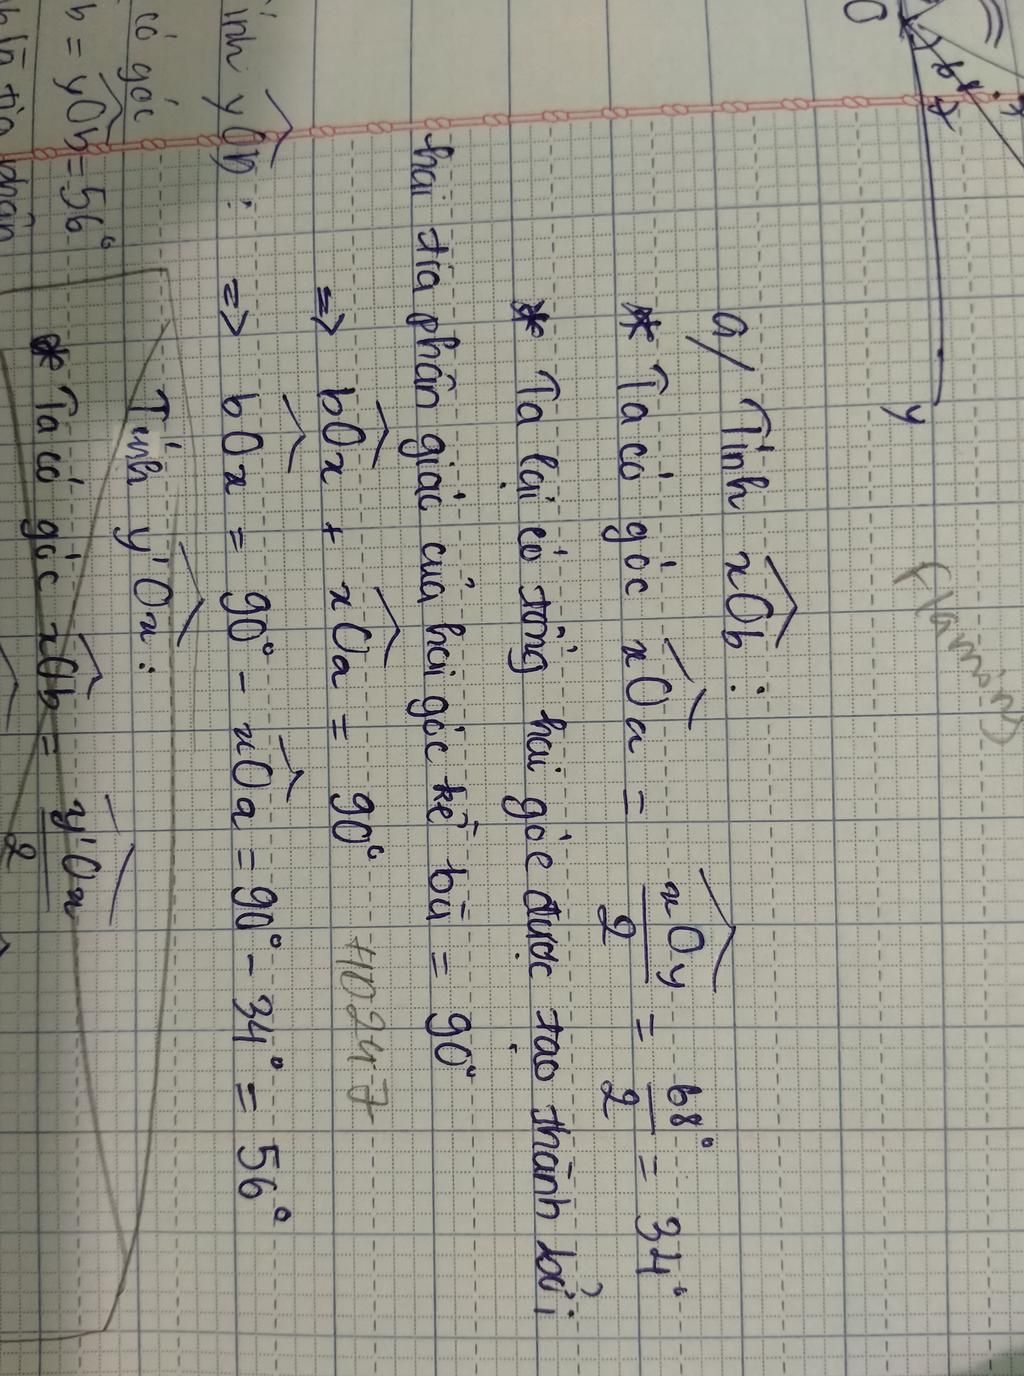 O
b
y
a/ Tính xOb :
* Ta có góc xOa = xOy/2 = 68°/2 = 34°
* Ta lại có tổng hai góc được tạo thành bởi
hai tia phân giác của hai góc kề bù = 90°
=> bOx + xOa = 90°
=> bOx = 90° - xOa = 90° - 34° = 56°
Tính y'Ox :
* Ta có góc xOb = y'Ox/2
ính yOb :
có góc
b = yOb = 56°
là tia phân